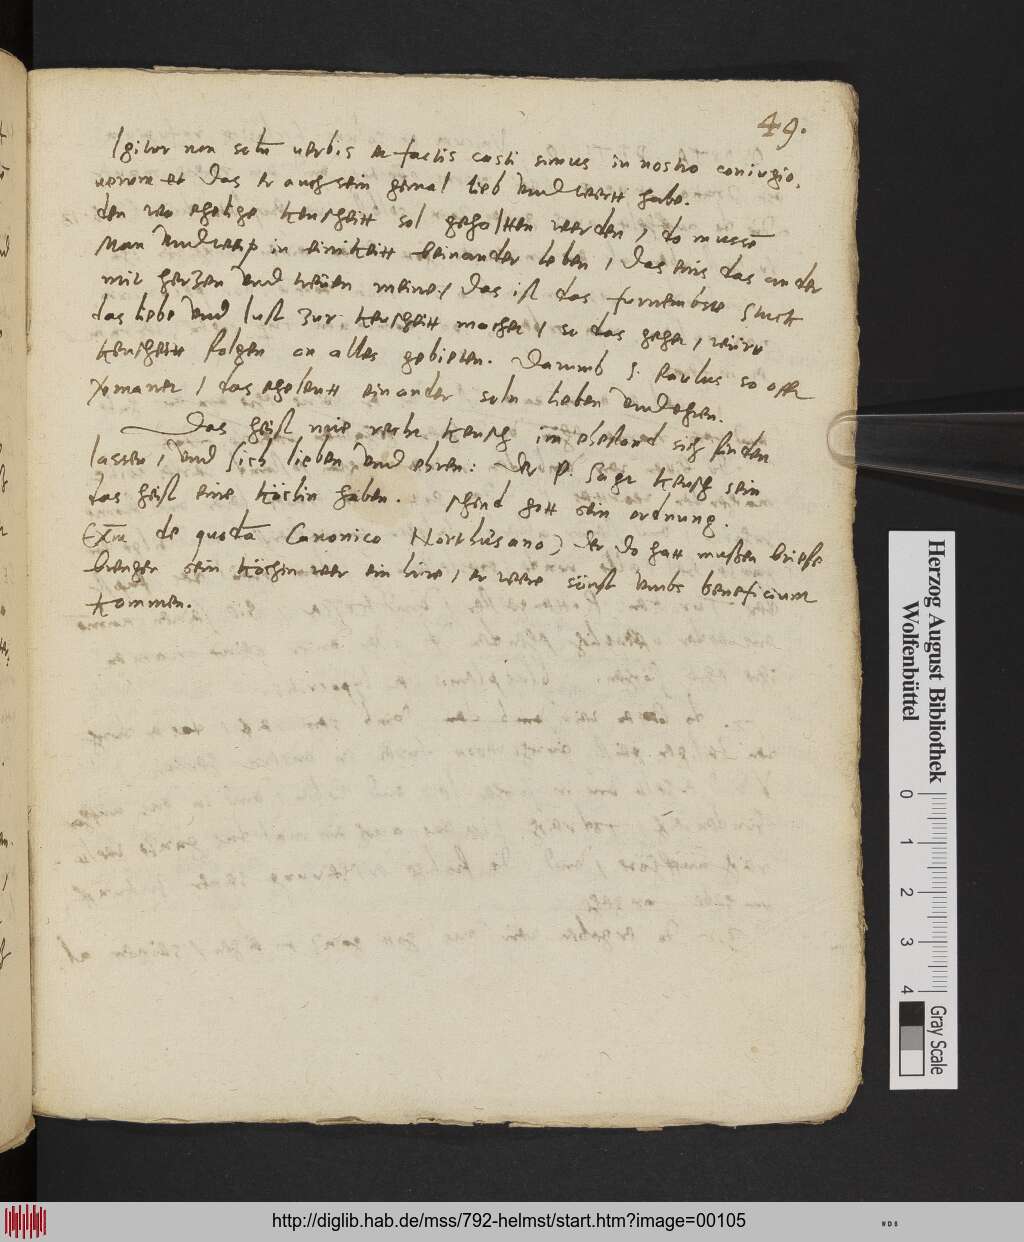 49.
Igitur non solū verbis et factis casti simus in nostro coniugio,
verum et das er auch sein gemal lieb vnd wertt habe.
den wo ehelige keuscheitt sol gehaltten werden / do mussē
Man vnd weip in einikeitt beinander leben / das eins das ander
mit herzen vnd treuen meine / das ist das furnembste stuck
das liebe vnd lust zur keuscheitt machet / so das gehet / wirt
keuscheitt folgen on alles gebieten. Darumb S. Paulus so offt
vormanet / das eheleutt einander soln lieben vnd ehren.
Das heist nuie recht keusch im ehestand sich finden
lassen / vnd sich lieben vnd ehren: der P. sagt keusch sein
das heist eine köchin haben. schend gott sein ordnung.
Exm de quodā Canonico Northusano) der do hatt mussen briefe
brengen sein köchin wer ein hure / er were sunst vmbs beneficium
kommen.
Herzog August Bibliothek
Wolfenbüttel
0 1 2 3 4
Gray Scale
http://diglib.hab.de/mss/792-helmst/start.htm?image=00105